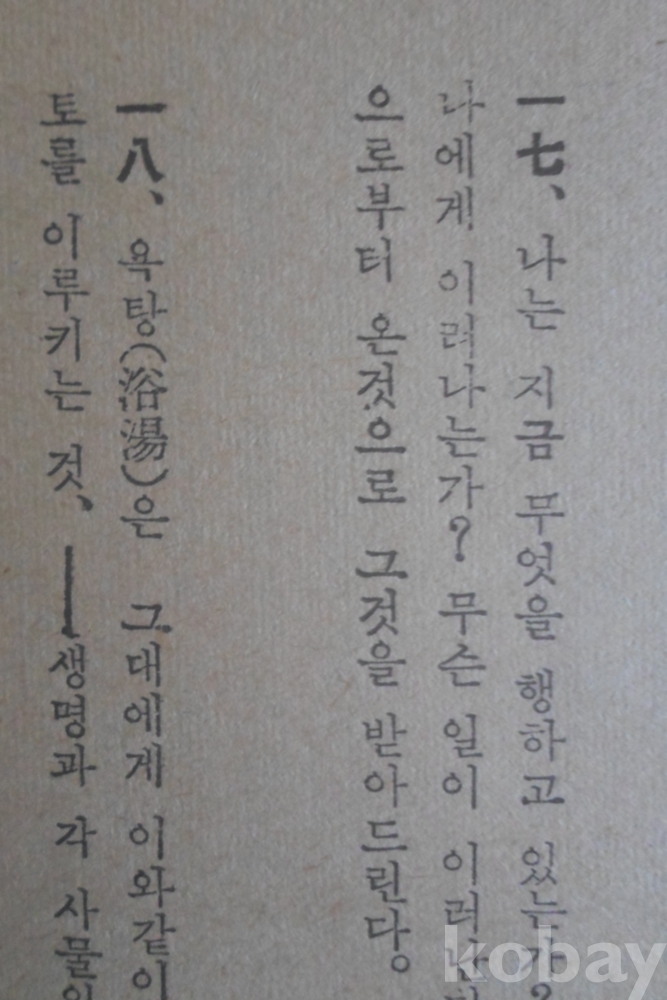 一七、 나는 지금 무엇을 행하고 있는가?
나에게 이러나는가? 무슨 일이 이러난
으로부터 온것으로 그것을 받아드린다。
一八、 욕탕(浴湯)은 그대에게 이와같이
토를 이루키는 것、 ―생명과 각 사물의
kobay